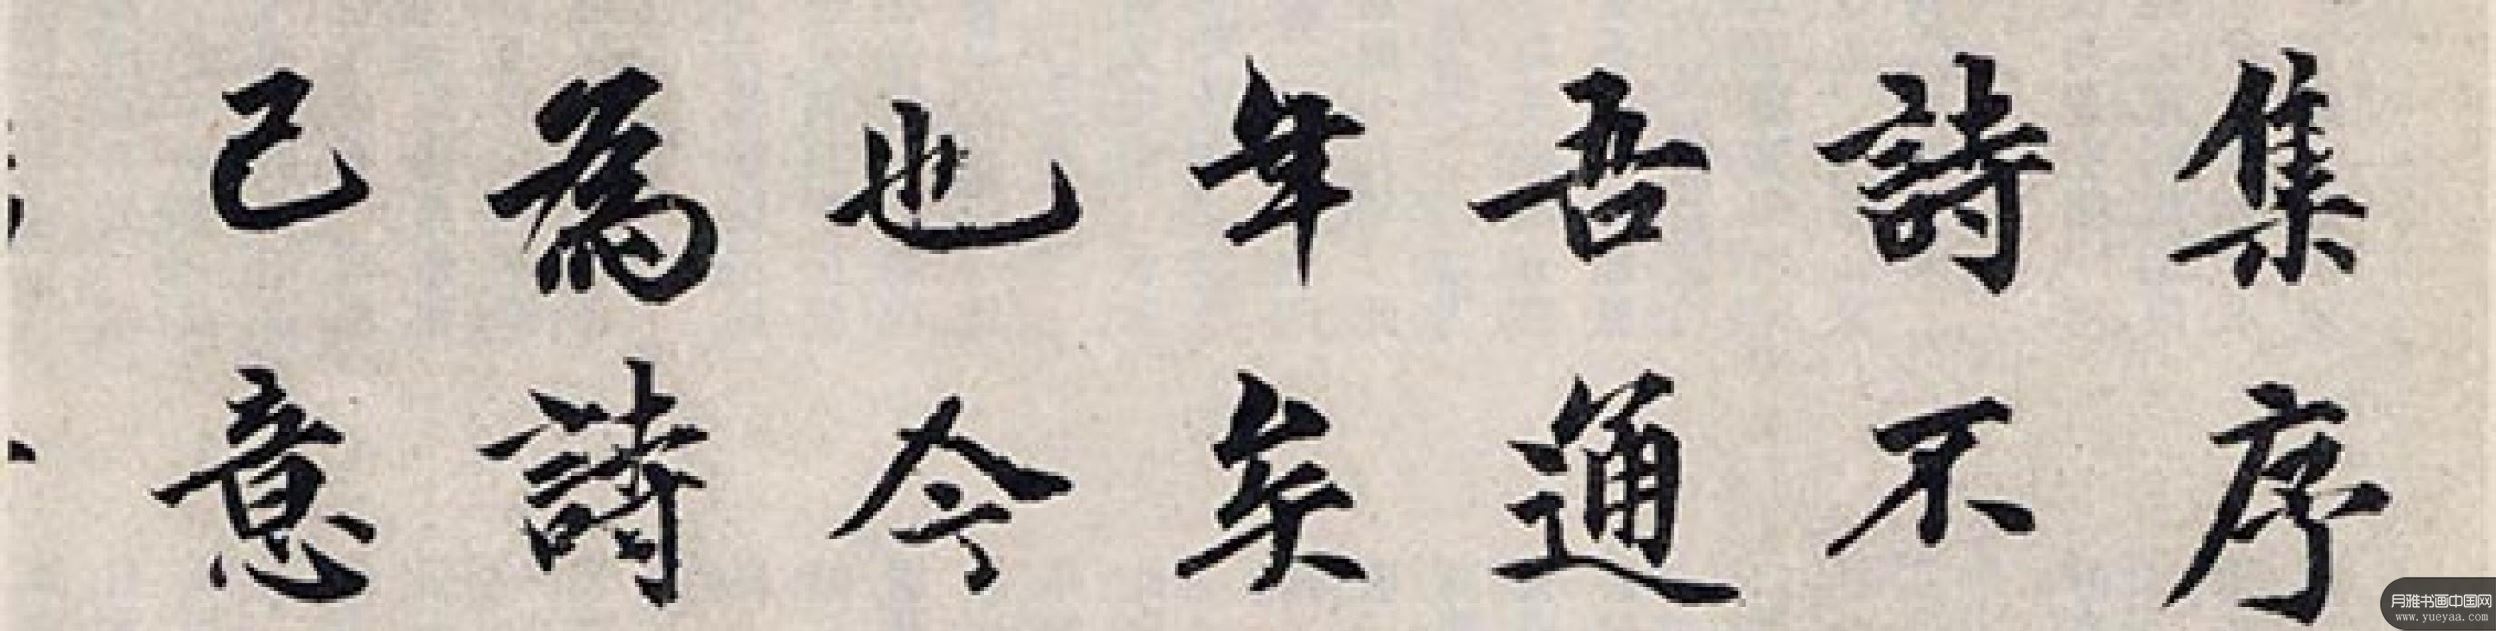 集序
詩不
吾通
年矣
也今
為詩
己意
月雅书画中国网
www.yueyaa.com